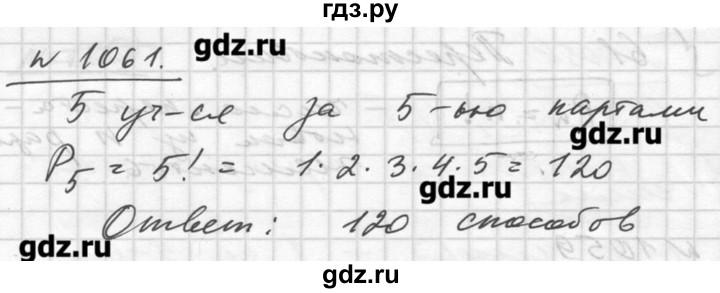 гдз.ру
№ 1061. gdz.ru
5 уч-ся за 5-ью партами
gdz.ru
P5 = 5! = 1·2·3·4·5 = 120
gdz.ru
Ответ: 120 способов
gdz.ru
gdz.ru